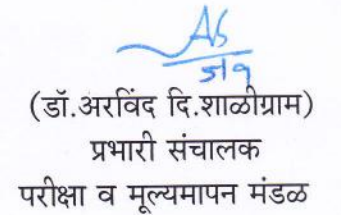 5/9
(डॉ.अरविंद दि.शाळीग्राम)
प्रभारी संचालक
परीक्षा व मूल्यमापन मंडळ